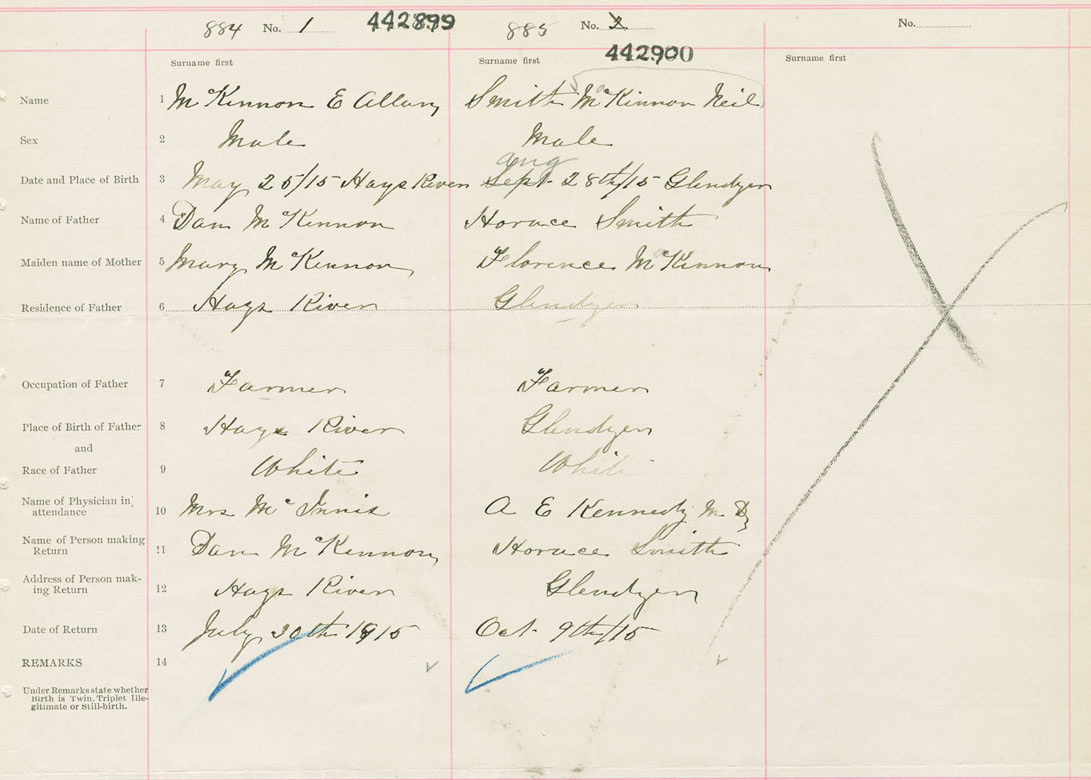 884 No. 1 442899 885 No. 2 No.
442900
Surname first Surname first Surname first
Name 1 McKinnon E Allan Smith McKinnon Neil
Sex 2 Male Male
Aug
Date and Place of Birth 3 May 25/15 Hays River Sept 28th/15 Glendyer
Name of Father 4 Dan McKinnon Horace Smith
Maiden name of Mother 5 Mary McKinnon Florence McKinnon
Residence of Father 6 Hays River Glendyer
Occupation of Father 7 Farmer Farmer
Place of Birth of Father 8 Hays River Glendyer
and
Race of Father 9 White White
Name of Physician in
attendance 10 Mrs McInnis A E Kennedy M D
Name of Person making
Return 11 Dan McKinnon Horace Smith
Address of Person mak-
ing Return 12 Hays River Glendyer
Date of Return 13 July 30th 1915 Oct 9th/15
REMARKS 14
Under Remarks state whether
Birth is Twin, Triplet Ille-
gitimate or Still-birth.